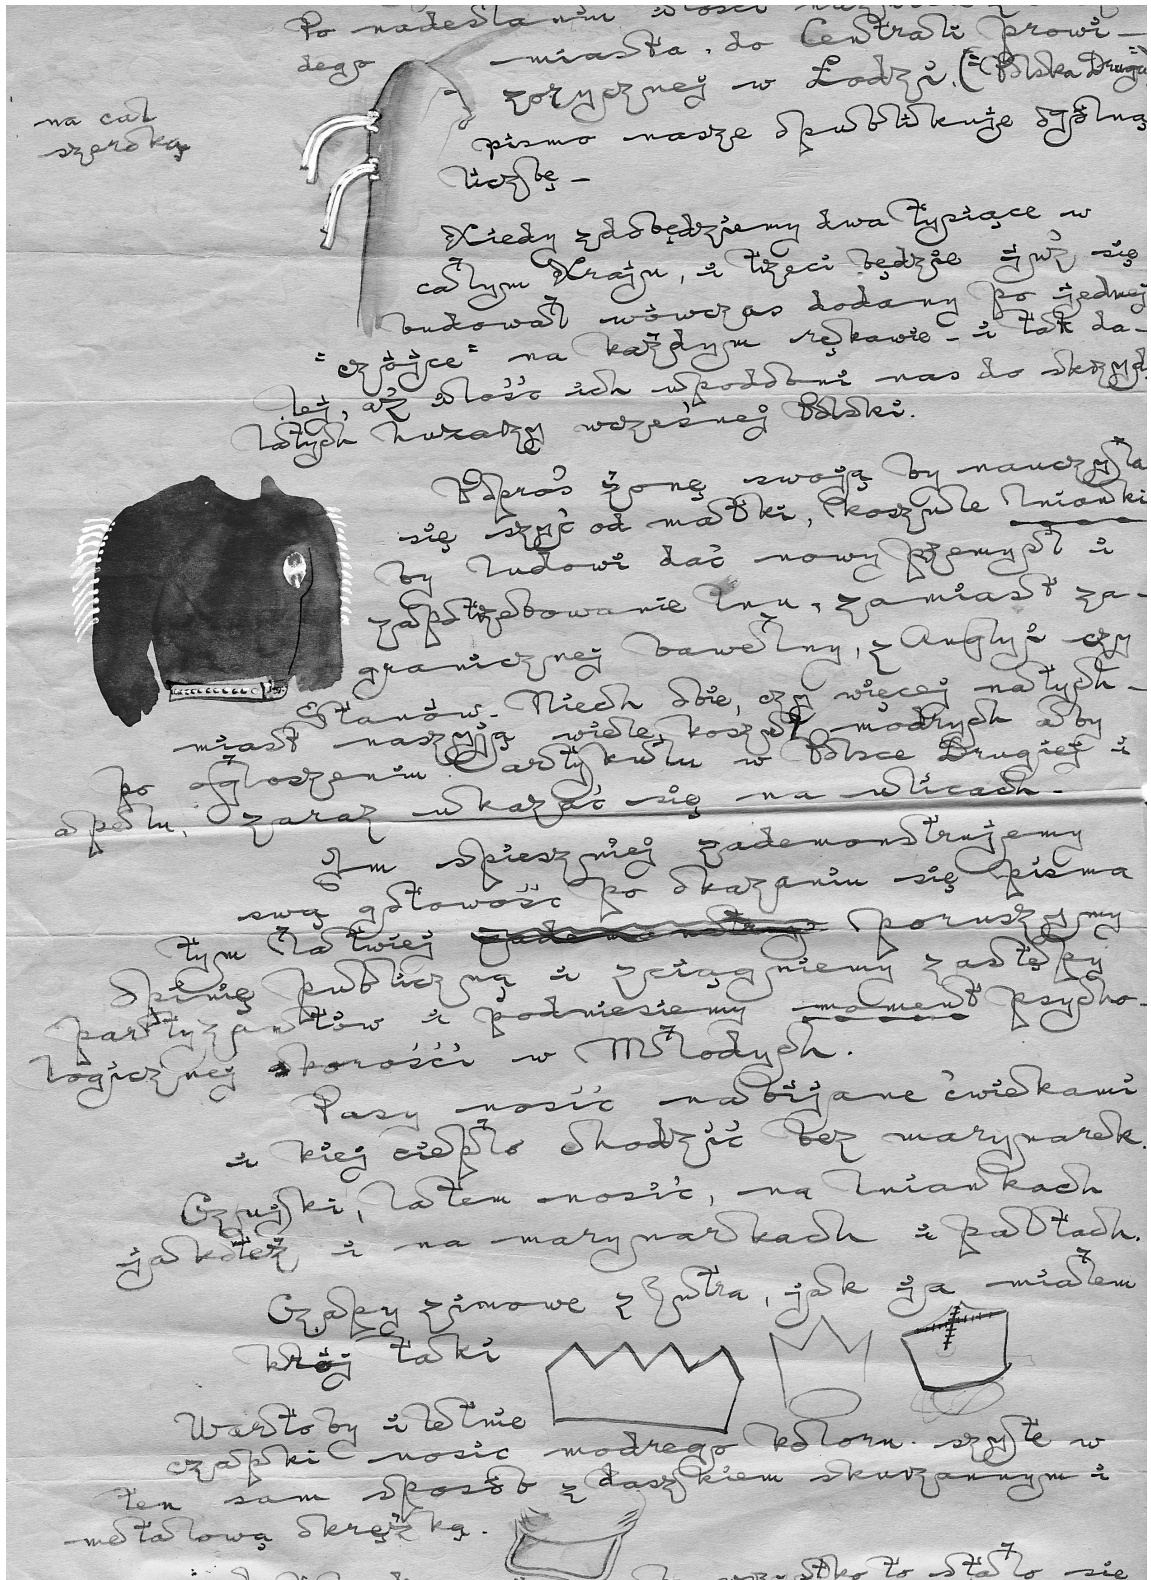 Po nadesłaniu ilości
dego miasta, do Centrali prowi-
zorycznej w Łodzi. (= Polska Druga
na cal
szeroką
pismo nasze opublikuje ogólną
liczbę -
Kiedy zdobędziemy dwa tysiące w
całym Kraju, i trzeci będzie już się
budował wówczas dodany po jednej
"czójce" na każdym rękawie - i tak da-
lej, aż ilość ich upodobni nas do skrzyd
latych huzarzy wcześnej Polski.
Poproś żonę swoją by nauczyła
się szyć od matki, koszule lnianki
by ludowi dać nowy przemysł i
zapotrzebowanie lnu, zamiast za-
granicznej bawełny, z Anglyji czy
Stanów. Niech obie, czy więcej natych-
miast naszyją wiele koszul modrych aby
po ogłoszeniu artykułu w Polsce Drugiej i
apelu, zaraz ukazać się na ulicach.
Im spieszniej zademonstrujemy
swą gotowość po okazaniu się pisma
tym łatwiej poruszymy
opinię publiczną i zciągniemy zastępy
partyzantów i podniesiemy moment psycho-
logicznej skorości w Młodych.
Pasy nosić nabijane ćwiekami
i kiej ciepło chodzić bez marynarek.
Czujki, latem nosić, na lniankach
jakoteż i na marynarkach i paltach.
Czapky zimowe z futra, jak ja miałem
krój taki
Wartoby i letnie
czapki nosic modrego koloru. szyte w
ten sam sposób z daszkiem skurzannym i
metalową okrężką.
wszystko to stało się